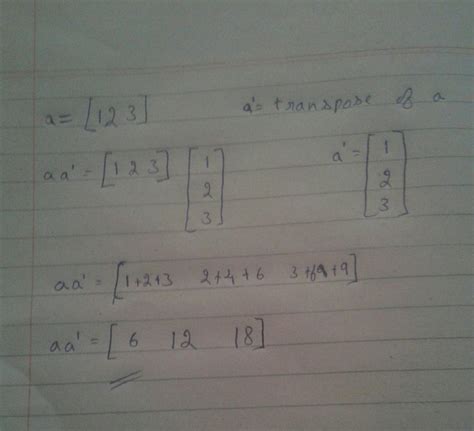 a = [1 2 3] a' = transpose of a
aa' = [1 2 3] [1 2 3] a' = [1 2 3]
aa' = [1+2+3 2+4+6 3+6+9]
aa' = [6 12 18]